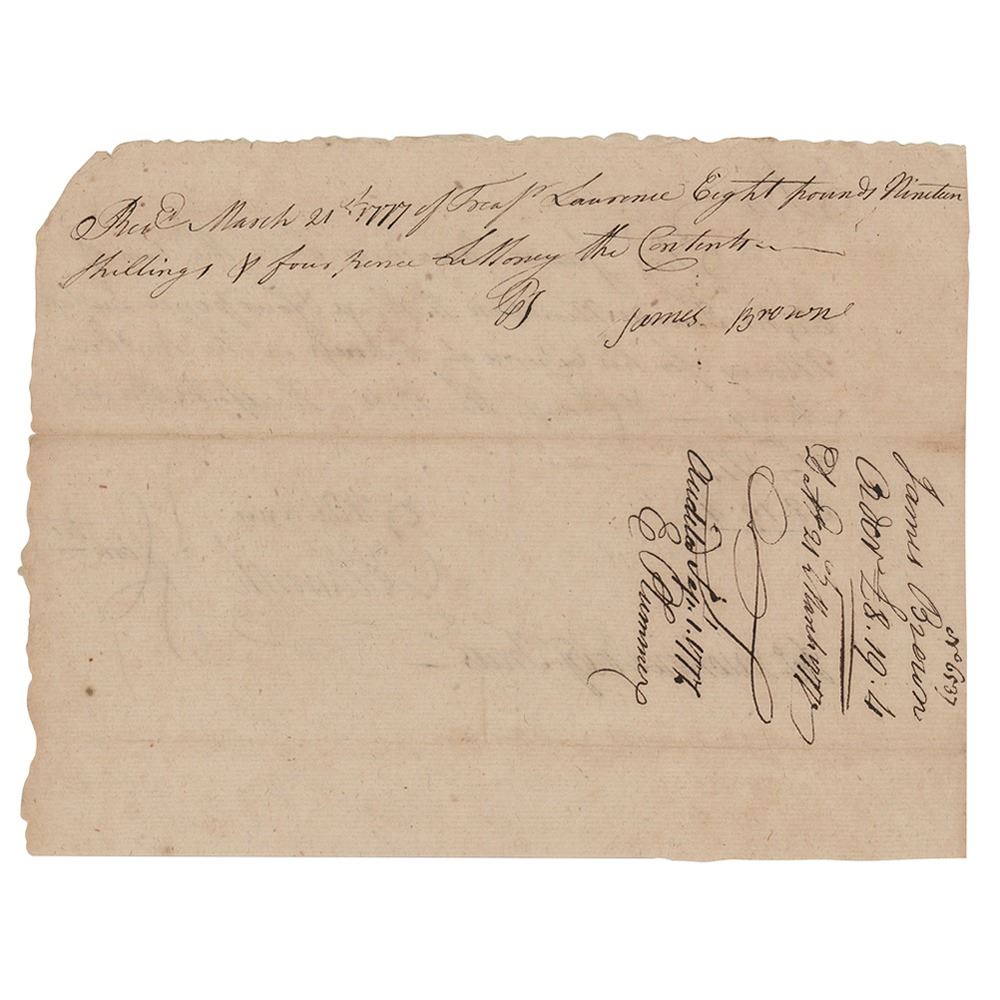 Recd March 21st 1777 of Treasr Lawrence Eight pounds Nineteen
shillings & four pence L Money the Contents
Pr James Brown
James Brown
Order £8.19.4
Datd 21st March 1777
Audited Sepr 1. 1777
E Plummer
No 6537